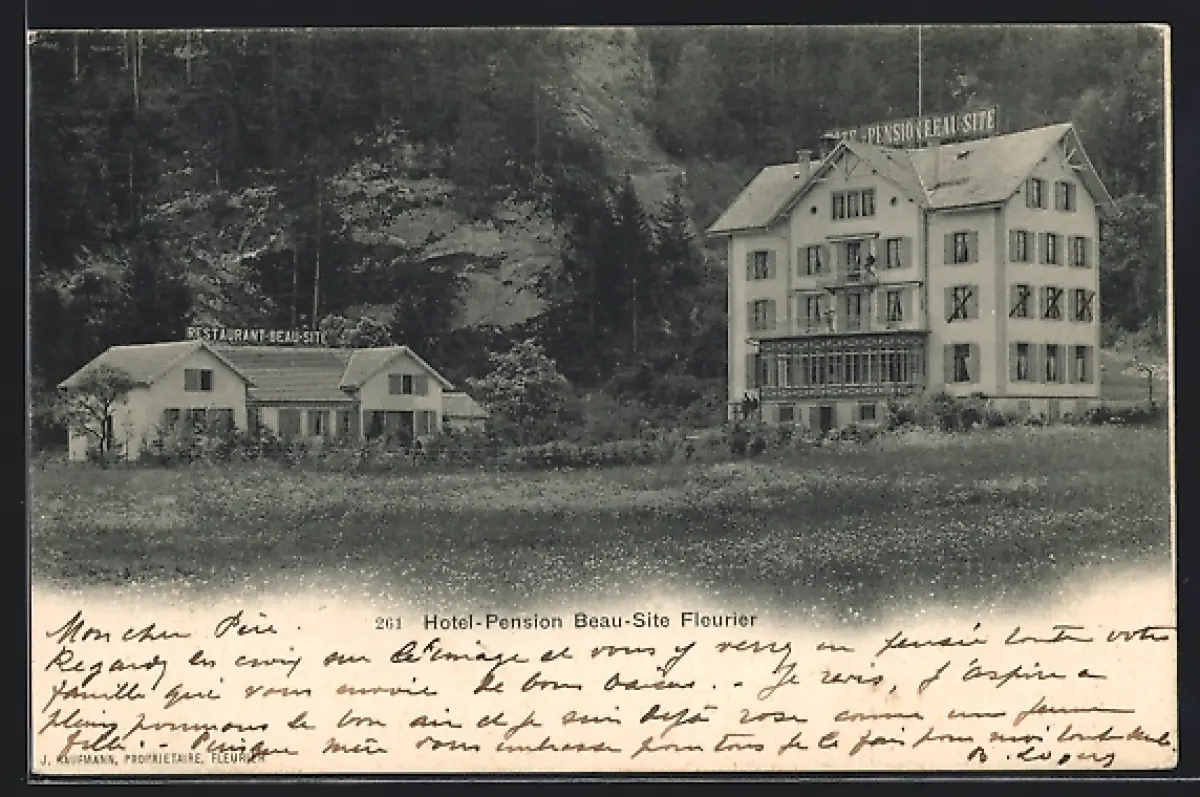 HOTEL-PENSION BEAU-SITE
RESTAURANT-BEAU-SITE
261 Hotel-Pension Beau-Site Fleurier
Mon cher Père.
Regardez les croix sur l'image et vous y verrez en pensée toute votre
famille qui vous envoie de bons baisers. - Je ravis, j'aspire a
pleins poumons le bon air et je suis déjà rose comme une jeune
fille. - Puisque mère vous embrasse pour tous je le fais pour moi tout seul.
J. KAUFMANN, PROPRIETAIRE, FLEURIER